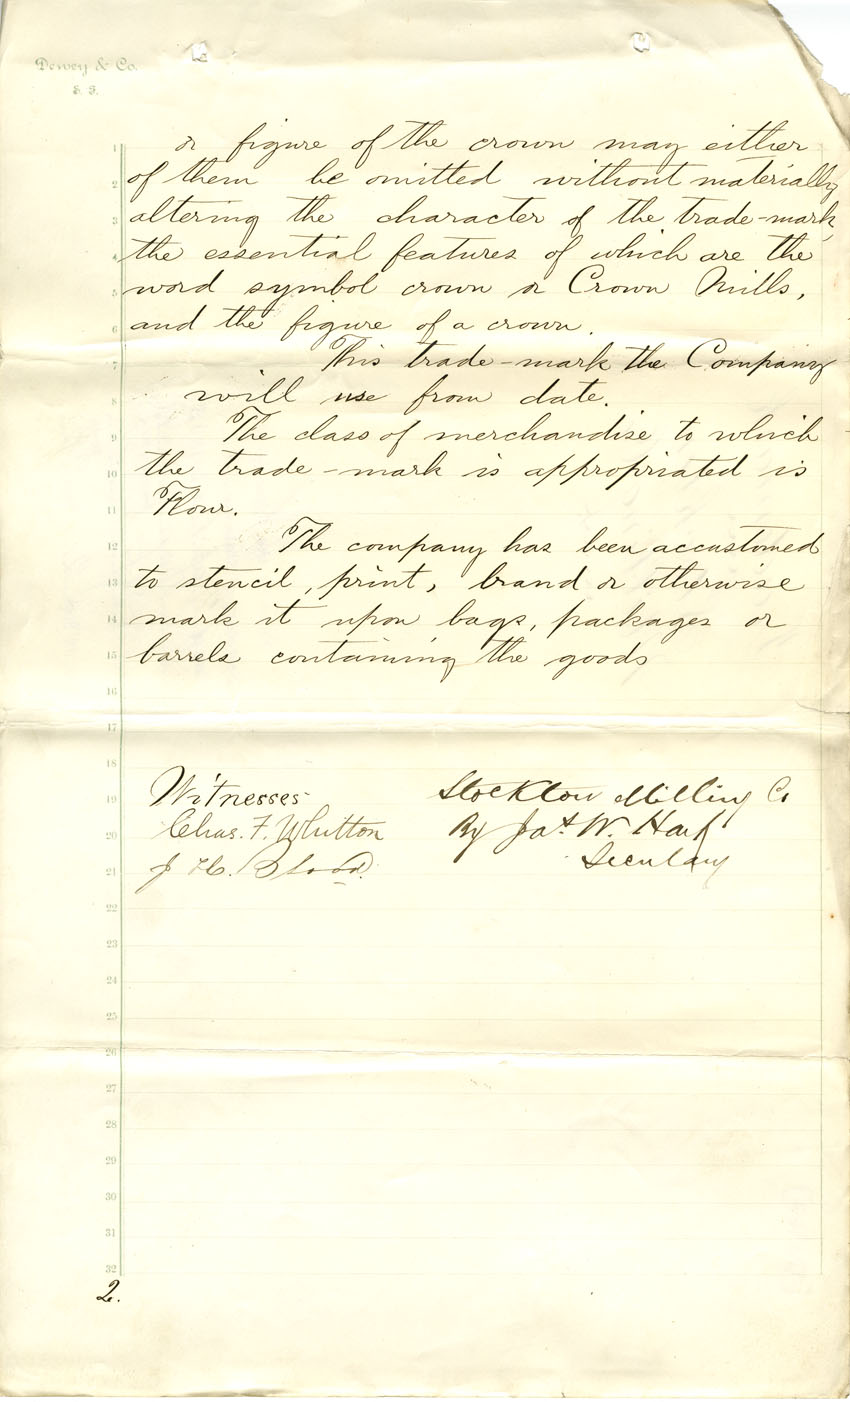 Dewey & Co.
S. F.
1 or figure of the crown may either
2 of them be omitted without materially
3 altering the character of the trade-mark,
4 the essential features of which are the
5 word symbol crown or Crown Mills,
6 and the figure of a crown.
7 This trade-mark the Company
8 will use from date.
9 The class of merchandise to which
10 the trade-mark is appropriated is
11 Flour.
12 The company has been accustomed
13 to stencil, print, brand or otherwise
14 mark it upon bags, packages or
15 barrels containing the goods
16
17
18
19 Witnesses Stockton Milling Co
20 Chas. F. Whitton By Jas W.
21 J H. Blood. Secretary
22
23
24
25
26
27
28
29
30
31
32
2.